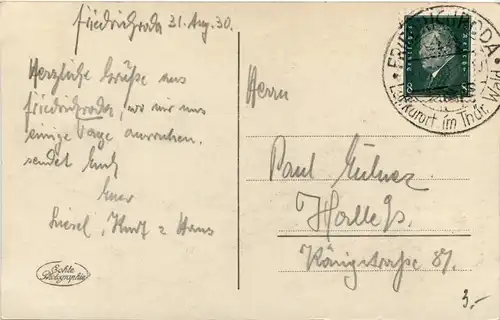 Friedrichroda 31. Aug. 30.
Herzliche Grüße aus
Friedrichroda, wo wir uns
einige Tage ausruhen,
sendet Euch
Euer
Liesel, Kurt u Hans
Echte
Photographie
Herrn
Paul
Halle S.
Königstraße 87.
3,-
Deutsches Reich
8
FRIEDRICHRODA
Luftkurort im Thür. Wald